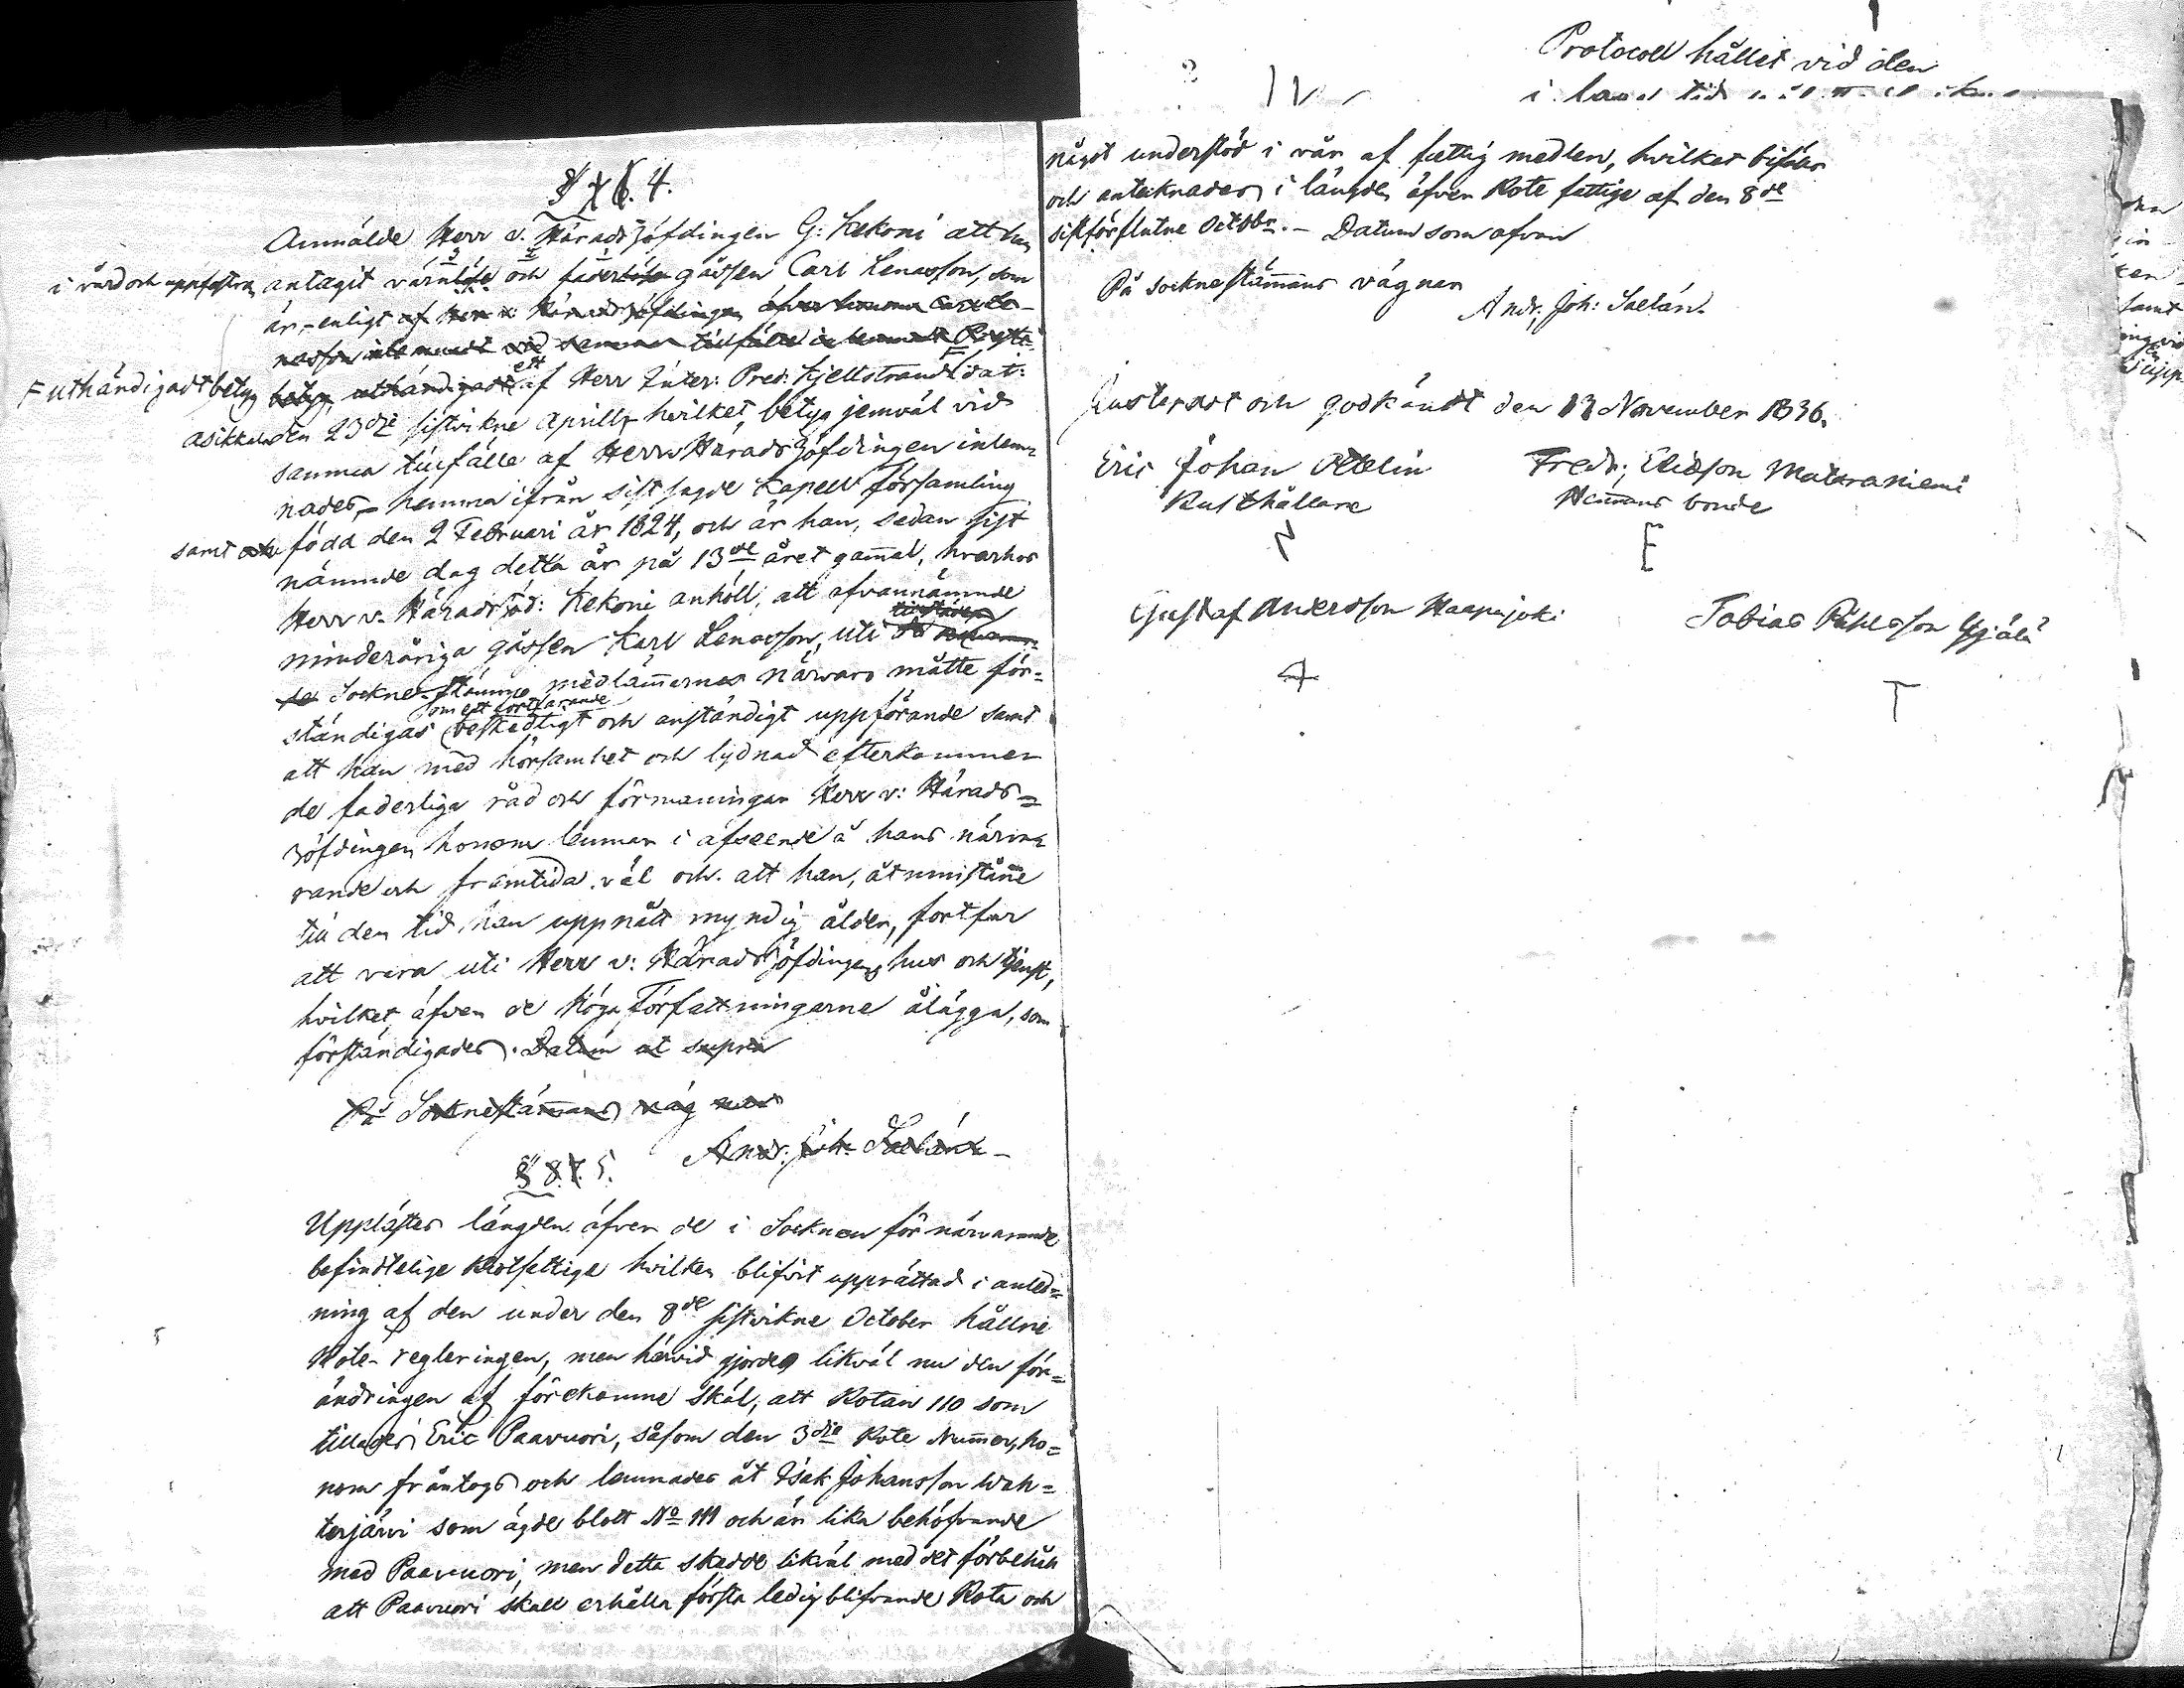 § 4.
Anmälde Herr v. Häradshöfdingen G: Kekoni att han
i vård och uppfostran antagit värnlöse och faderlöse gåssen Carl Lenasson, som
är, enligt af Herr v: Häradshöfdingen
F uthändigadt betyg betyg, uthändigadt ett af Herr Inter: Pred: Kjellstrand dat:
Asikkala den 23die sistvikne Aprill, hvilket betyg jemväl vid
samma tillfälle af Herrv. Häradshöfdingen inlem=
nades, hemma ifrån sistsagde Kapell församling
samt född den 2 Februari år 1824, och är han, sedan sist
nämnde dag detta år på 13de året gam̄al, hvarhos
Herr v. Häradshöfd: Kekoni anhöll, att ofvannämnde
minderåriga gåssen Karl Lenasson, uti
Sockne-stämmo medläm̄ernas närvaro måtte för=
som ett fortfarande
ständigas beskedligt och anständigt uppförande samt
att han med hörsamhet och lydnad efterkommer
de faderliga råd och förmaningar Herr v: Härads=
höfdingen honom lemnar i afseende å hans närva
rande och framtida väl och att han, åtminstone
till den tid, han uppnått myndig ålder, fortfar
att vara uti Herr v: Häradshöfdingens hus och tjenst,
hvilket äfven de Höga Författningarne ålägga, som
förständigades. Datum ut supra
På Sockneståm̄ans vägnar
Andr: Joh: Saelán
§ 8. 7. 5.
Upplästes längden äfver de i Socknen för närvarande
befindtelige Rotfattige hvilken blifvit upprättad i anled=
ning af den under den 8de sistvikne October hållne
Rote-regleringen, men härvid gjordes likväl nu den för=
ändringen af förekomne skäl, att Rotan 110 som
tillades Eric Paavuori, såsom den 3die Rote Num̄er, ho=
nom fråntogs och lemnades åt Isak Johansson Wah=
terjärvi som ägde blott No 111 och är lika behöfvande
med Paavuori, men detta skedde likväl med det förbehåll
att Paavuori skall erhålla första ledig blifvande Rota och
Protocoll hållet vid den
i laga tid
något understöd i vår af fattig medlen, hvilket bifölls
och antecknades i längden äfver Rote fattige af den 8de
sistförflutne Octobr. - Datum som ofvan
På sockneståm̄ans vägnar
Andr: Joh: Saelán.
Justerat och godkändt den 13 November 1836.
Eric Johan Ottelin
Rusthållare
Fredr: Elidsson Mataraniemi
Hem̄ans bonde
Gustaf Andersson Haapajoki
Tobias Påhlsson